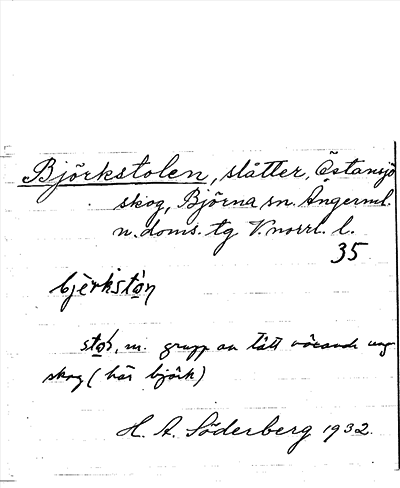 Björkstolen, slåtter, Östansjö
skog, Björna sn. Ångerml.
n. doms. tg V.norrl. l.
35
bjèrkstón
sto̲l, m. grupp av tätt växande ung-
skog (här björk)
H. A. Söderberg 1932.